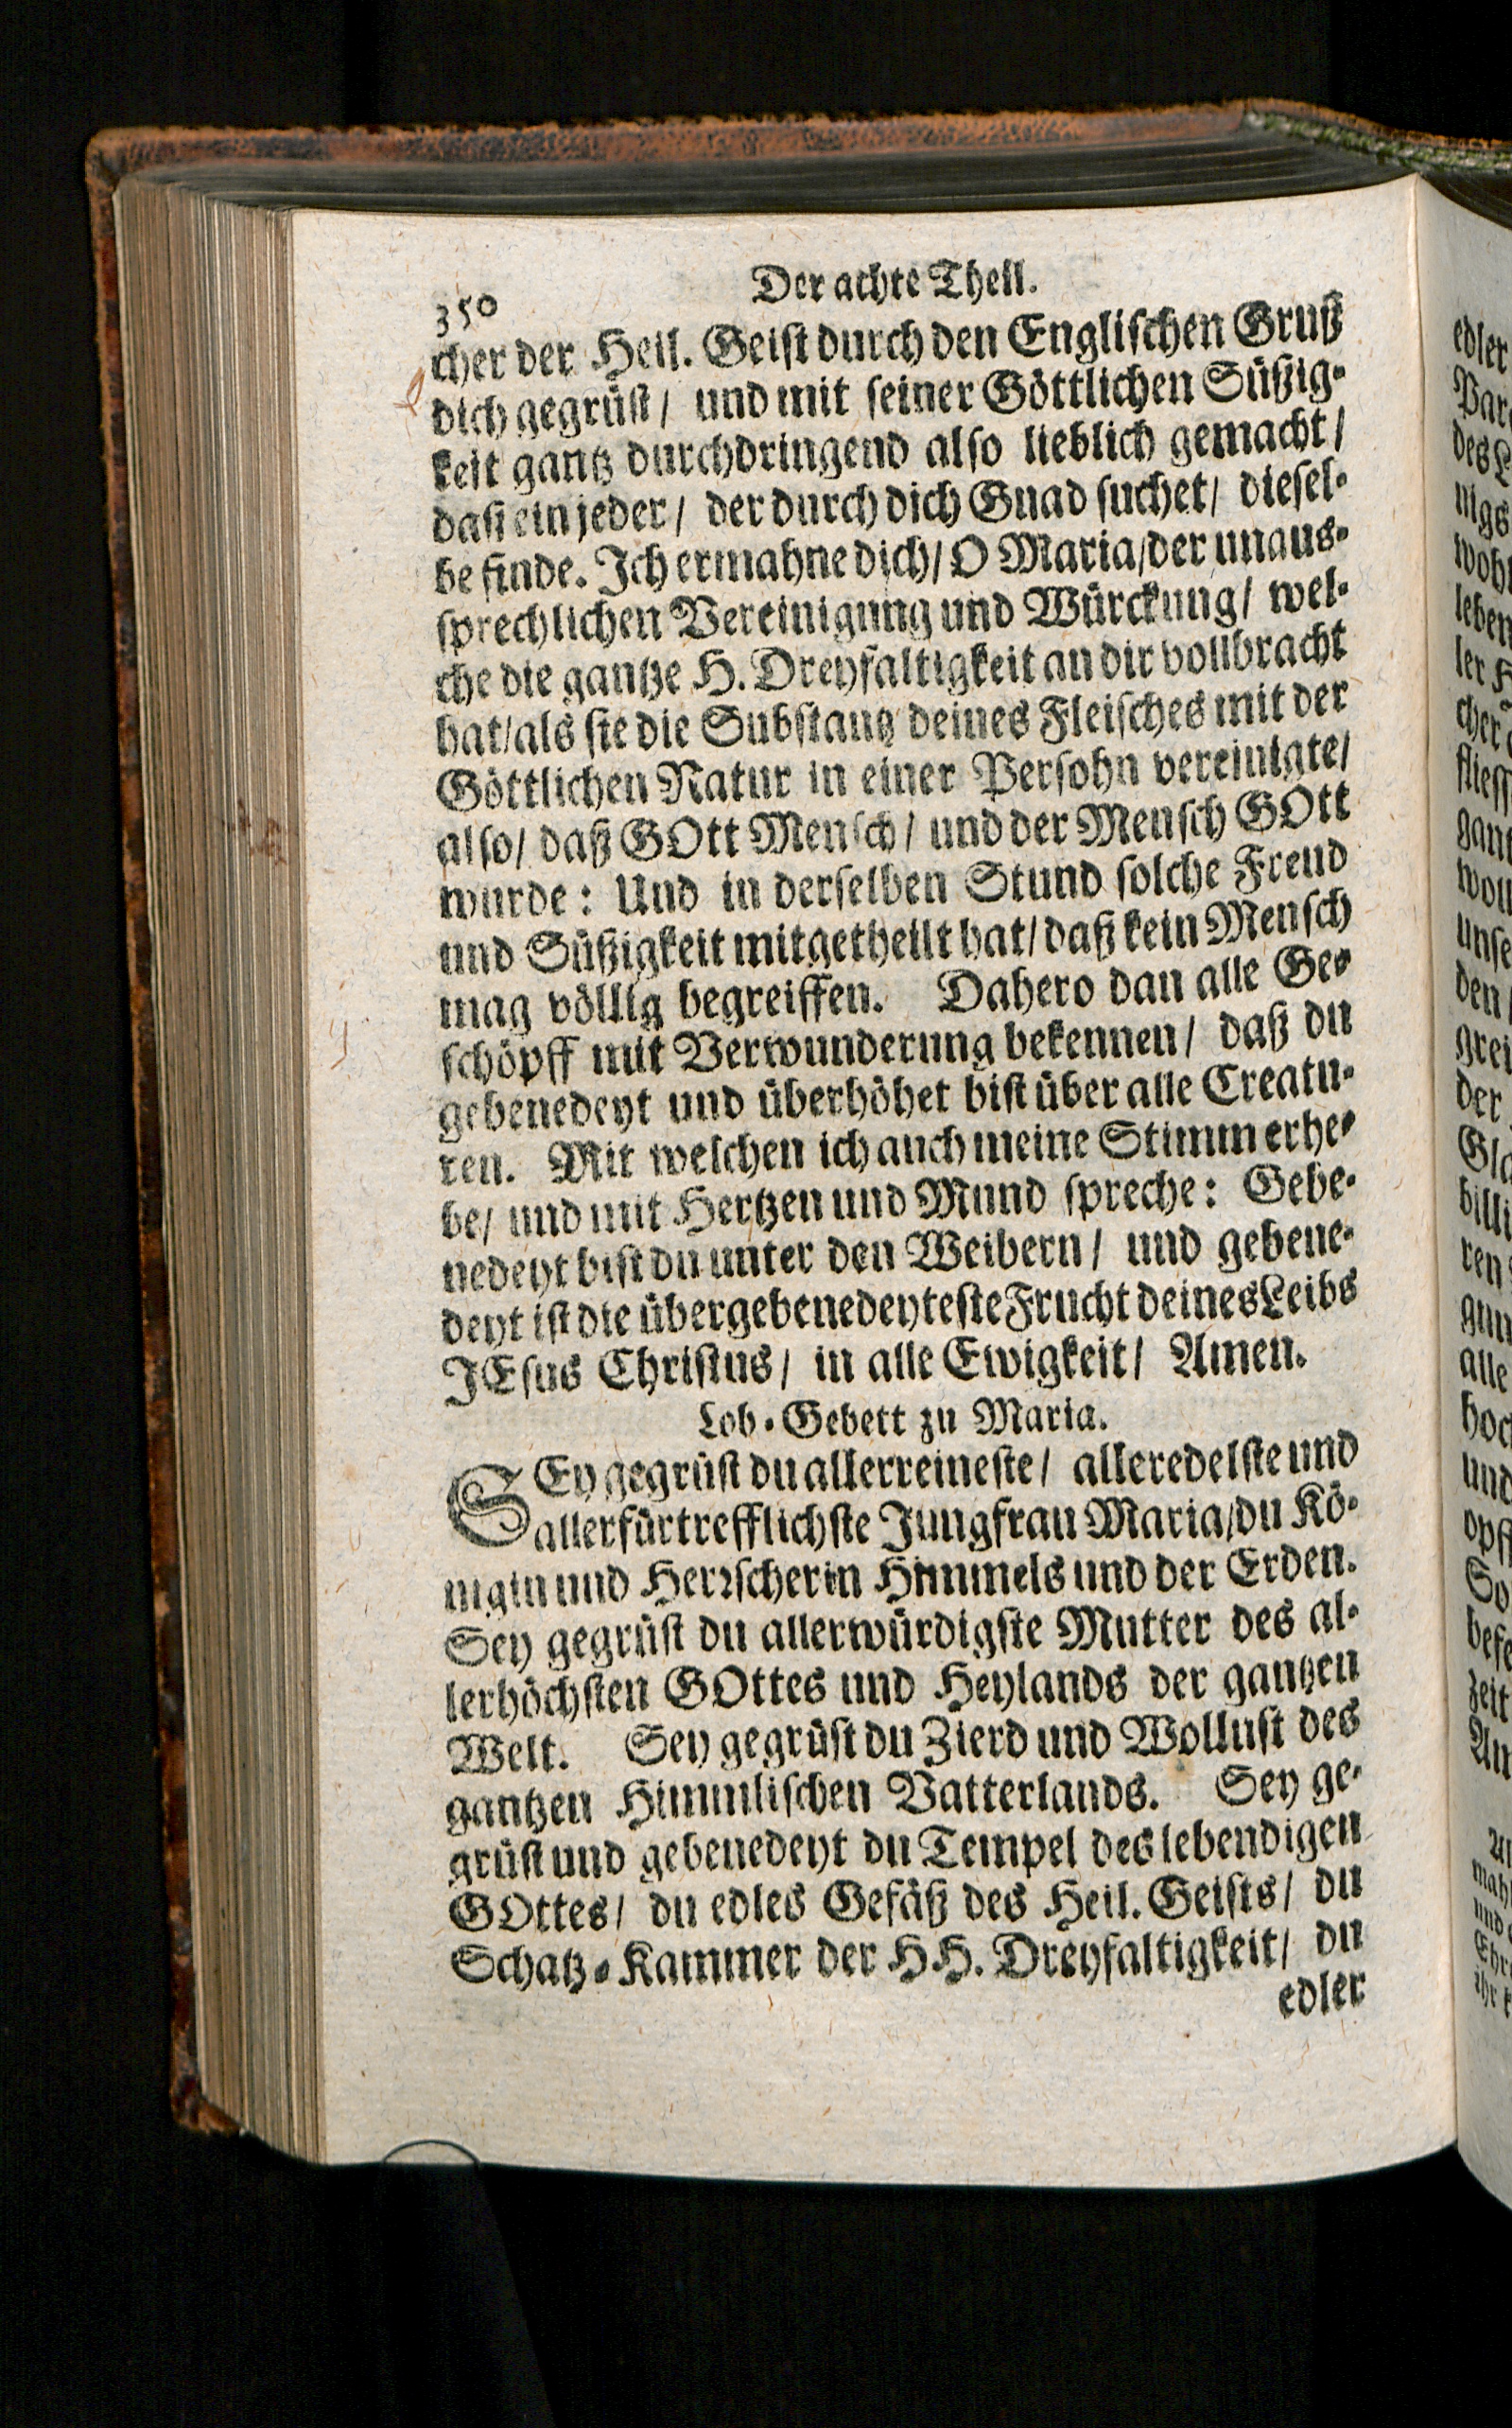 350 Der achte Theil.
cher der Heil. Geist durch den Englischen Gruß
dich gegrüst / und mit seiner Göttlichen Süßig-
keit gantz durchdringend also lieblich gemacht /
daß ein jeder / der durch dich Gnad suchet / diesel-
be finde. Ich ermahne dich / O Maria / der unaus-
sprechlichen Vereinigung und Würckung / wel-
che die gantze H. Dreyfaltigkeit an dir vollbracht
hat / als sie die Substantz deines Fleisches mit der
Göttlichen Natur in einer Persohn vereinigte /
also / daß GOtt Mensch / und der Mensch GOtt
wurde: Und in derselben Stund solche Freud
und Süßigkeit mitgetheilt hat / daß kein Mensch
mag völlig begreiffen. Dahero dan alle Ge-
schöpff mit Verwunderung bekennen / daß du
gebenedeyt und überhöhet bist über alle Creatu-
ren. Mit welchen ich auch meine Stimm erhe-
be / und mit Hertzen und Mund spreche: Gebe-
nedeyt bist du unter den Weibern / und gebene-
deyt ist die übergebenedeyteste Frucht deines Leibs
JEsus Christus / in alle Ewigkeit / Amen.
Lob-Gebett zu Maria.
SEy gegrüst du allerreineste / alleredelste und
allerfürtrefflichste Jungfrau Maria / du Kö-
nigin und Herrscherin Himmels und der Erden.
Sey gegrüst du allerwürdigste Mutter des al-
lerhöchsten GOttes und Heylands der gantzen
Welt. Sey gegrüst du Zierd und Wollust des
gantzen Himmlischen Vatterlands. Sey ge-
grüst und gebenedeyt du Tempel des lebendigen
GOttes / du edles Gefäß des Heil. Geists / du
Schatz-Kammer der HH. Dreyfaltigkeit / du
edler